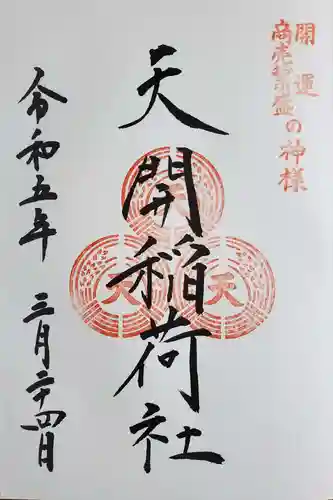 開運
商売繁盛の神様
天開稲荷社
天
天
令和五年 三月二十四日